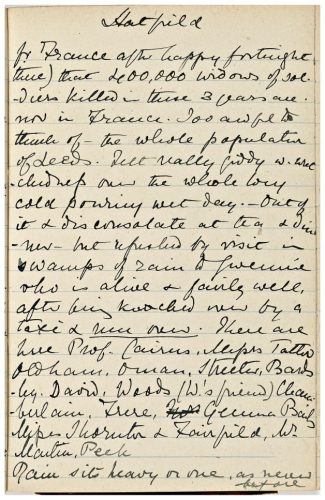 Hatfield
fr France after happy fortnight
there) that 400,000 widows of sol-
-diers killed in these 3 years are
now in France. Too awful to
think of - the whole population
of Leeds. Felt really giddy w. wret-
-chedness over the whole long
cold pouring wet day. - Out of
it & disconsolate at tea & din-
-ner - but refreshed by visit in
swamps of rain to Gwennie
who is alive & fairly well,
after being knocked over by a
taxi & run over. There are
here Prof. Cairns, Misses
Oldham, Oman, Streeter, Bards-
-ley. David, Woods (W's friend) Cham-
-berlain, Frere, Gemma
Misses Thornton & Fairfield, Mr
Martin, Peek
Pain sits heavy on one, as never
before